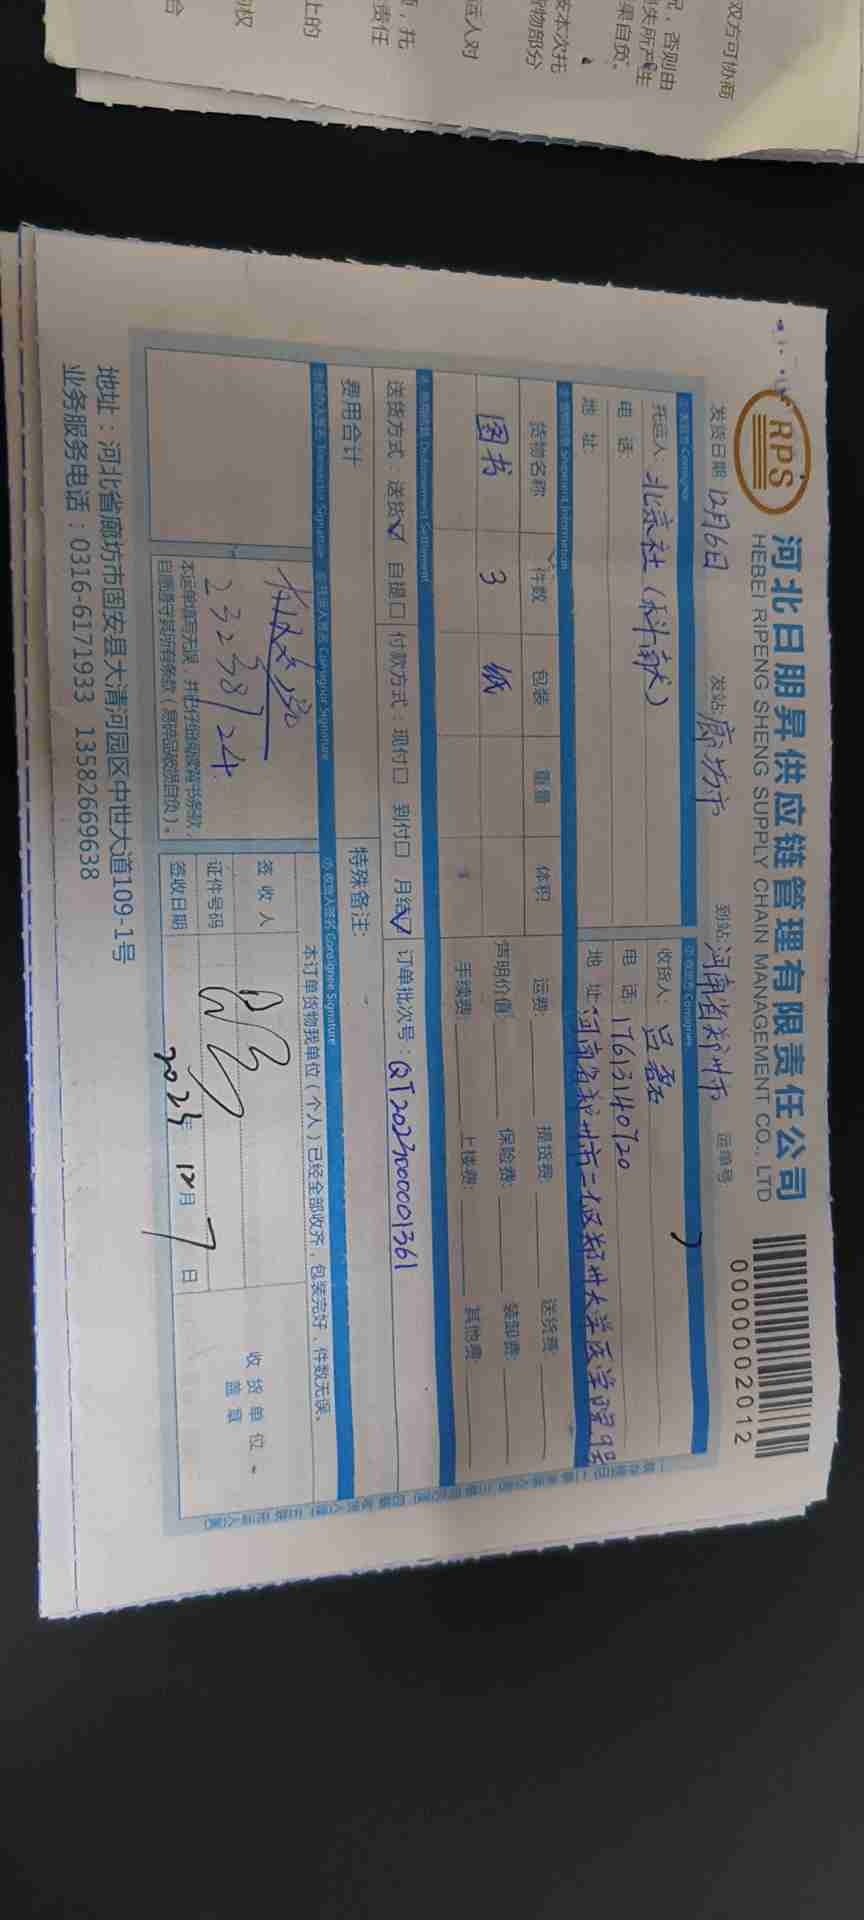 双方可协商
况，否则由
损失所产生
果自负。
按本次托
货物部分
运人对
，托
责任
上的
权
合
RPS
河北日朋昇供应链管理有限责任公司
HEBEI RIPENG SHENG SUPPLY CHAIN MANAGEMENT CO., LTD
0000002012
发货日期 12月6日 发站: 廊坊市 到站: 河南省郑州市 运单号:
托运人 北京社（科献）
电 话:
地 址:
收货人: 吕磊
电 话: 17613140720
地 址: 河南省郑州市二七区郑州大学医学院9号
货物名称 件数 包装 重量 体积
图书 3 纸
运费: 提货费: 送货费:
声明价值: 保险费: 装卸费:
手续费: 上楼费: 其他费:
送货方式：送货☑ 自提口 付款方式：现付口 到付口 月结☑ 订单批次号：QT202300001361
费用合计 特殊备注:
② 收货人签名 Consignee Signature
本订单货物我单位（个人）已经全部收齐，包装完好，件数无误。
签 收 人
证件号码
签收日期 2023年 12月 7日
收 货 单 位
盖 章
2323824
本运单填写无误，并已仔细阅读背书条款，
自愿遵守其所有条款（易碎品破损自负）。
地址：河北省廊坊市固安县大清河园区中世大道109-1号
业务服务电话：0316-6171933 13582669638